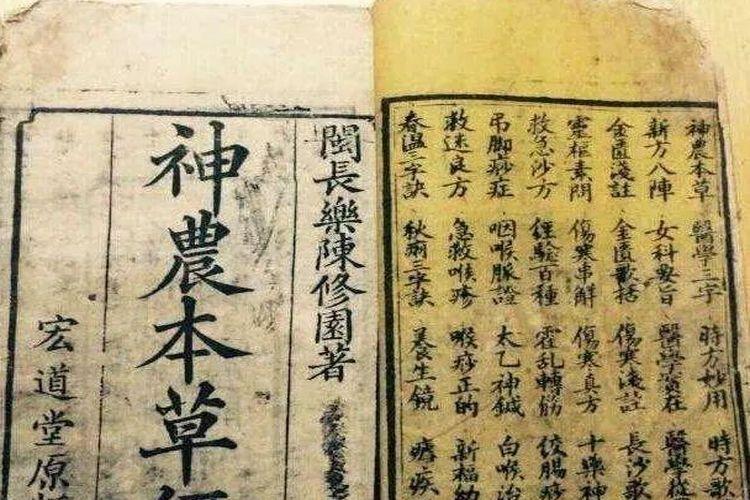 神農本草 醫學三字 時方妙用 時方歌
新方八陣 女科要旨 醫學實在 醫學從
金匱淺註 金匱歌括 傷寒淺註 長沙歌
靈樞素問 傷寒串解 傷寒真方 十藥神
救急沙方 經驗百種 霍乱轉筋 絞腸痧
吊脚痧症 咽喉脈證 太乙神鍼 白喉治
救迷良方 急救喉疹 喉痧正的 新福幼
春温三字訣 秋雨三字訣 養生鏡 瘧疾
閩長樂陳修園著
神農本草經
宏道堂原